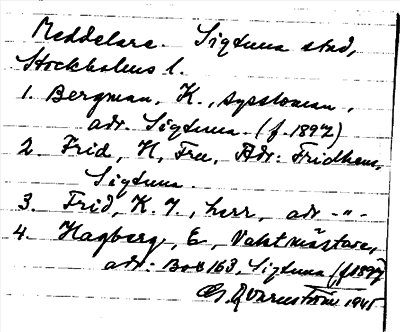 Meddelare. Sigtuna stad,
Stockholms l.
1. Bergman, K., sysloman,
adr. Sigtuna. (f. 1897)
2. Frid, H, Fru, Adr: Fridhem,
Sigtuna.
3. Frid, K. J., herr, adr -"-
4. Hagberg, E, Vaktmästare,
adr: Box 163, Sigtuna (f 1897
1945